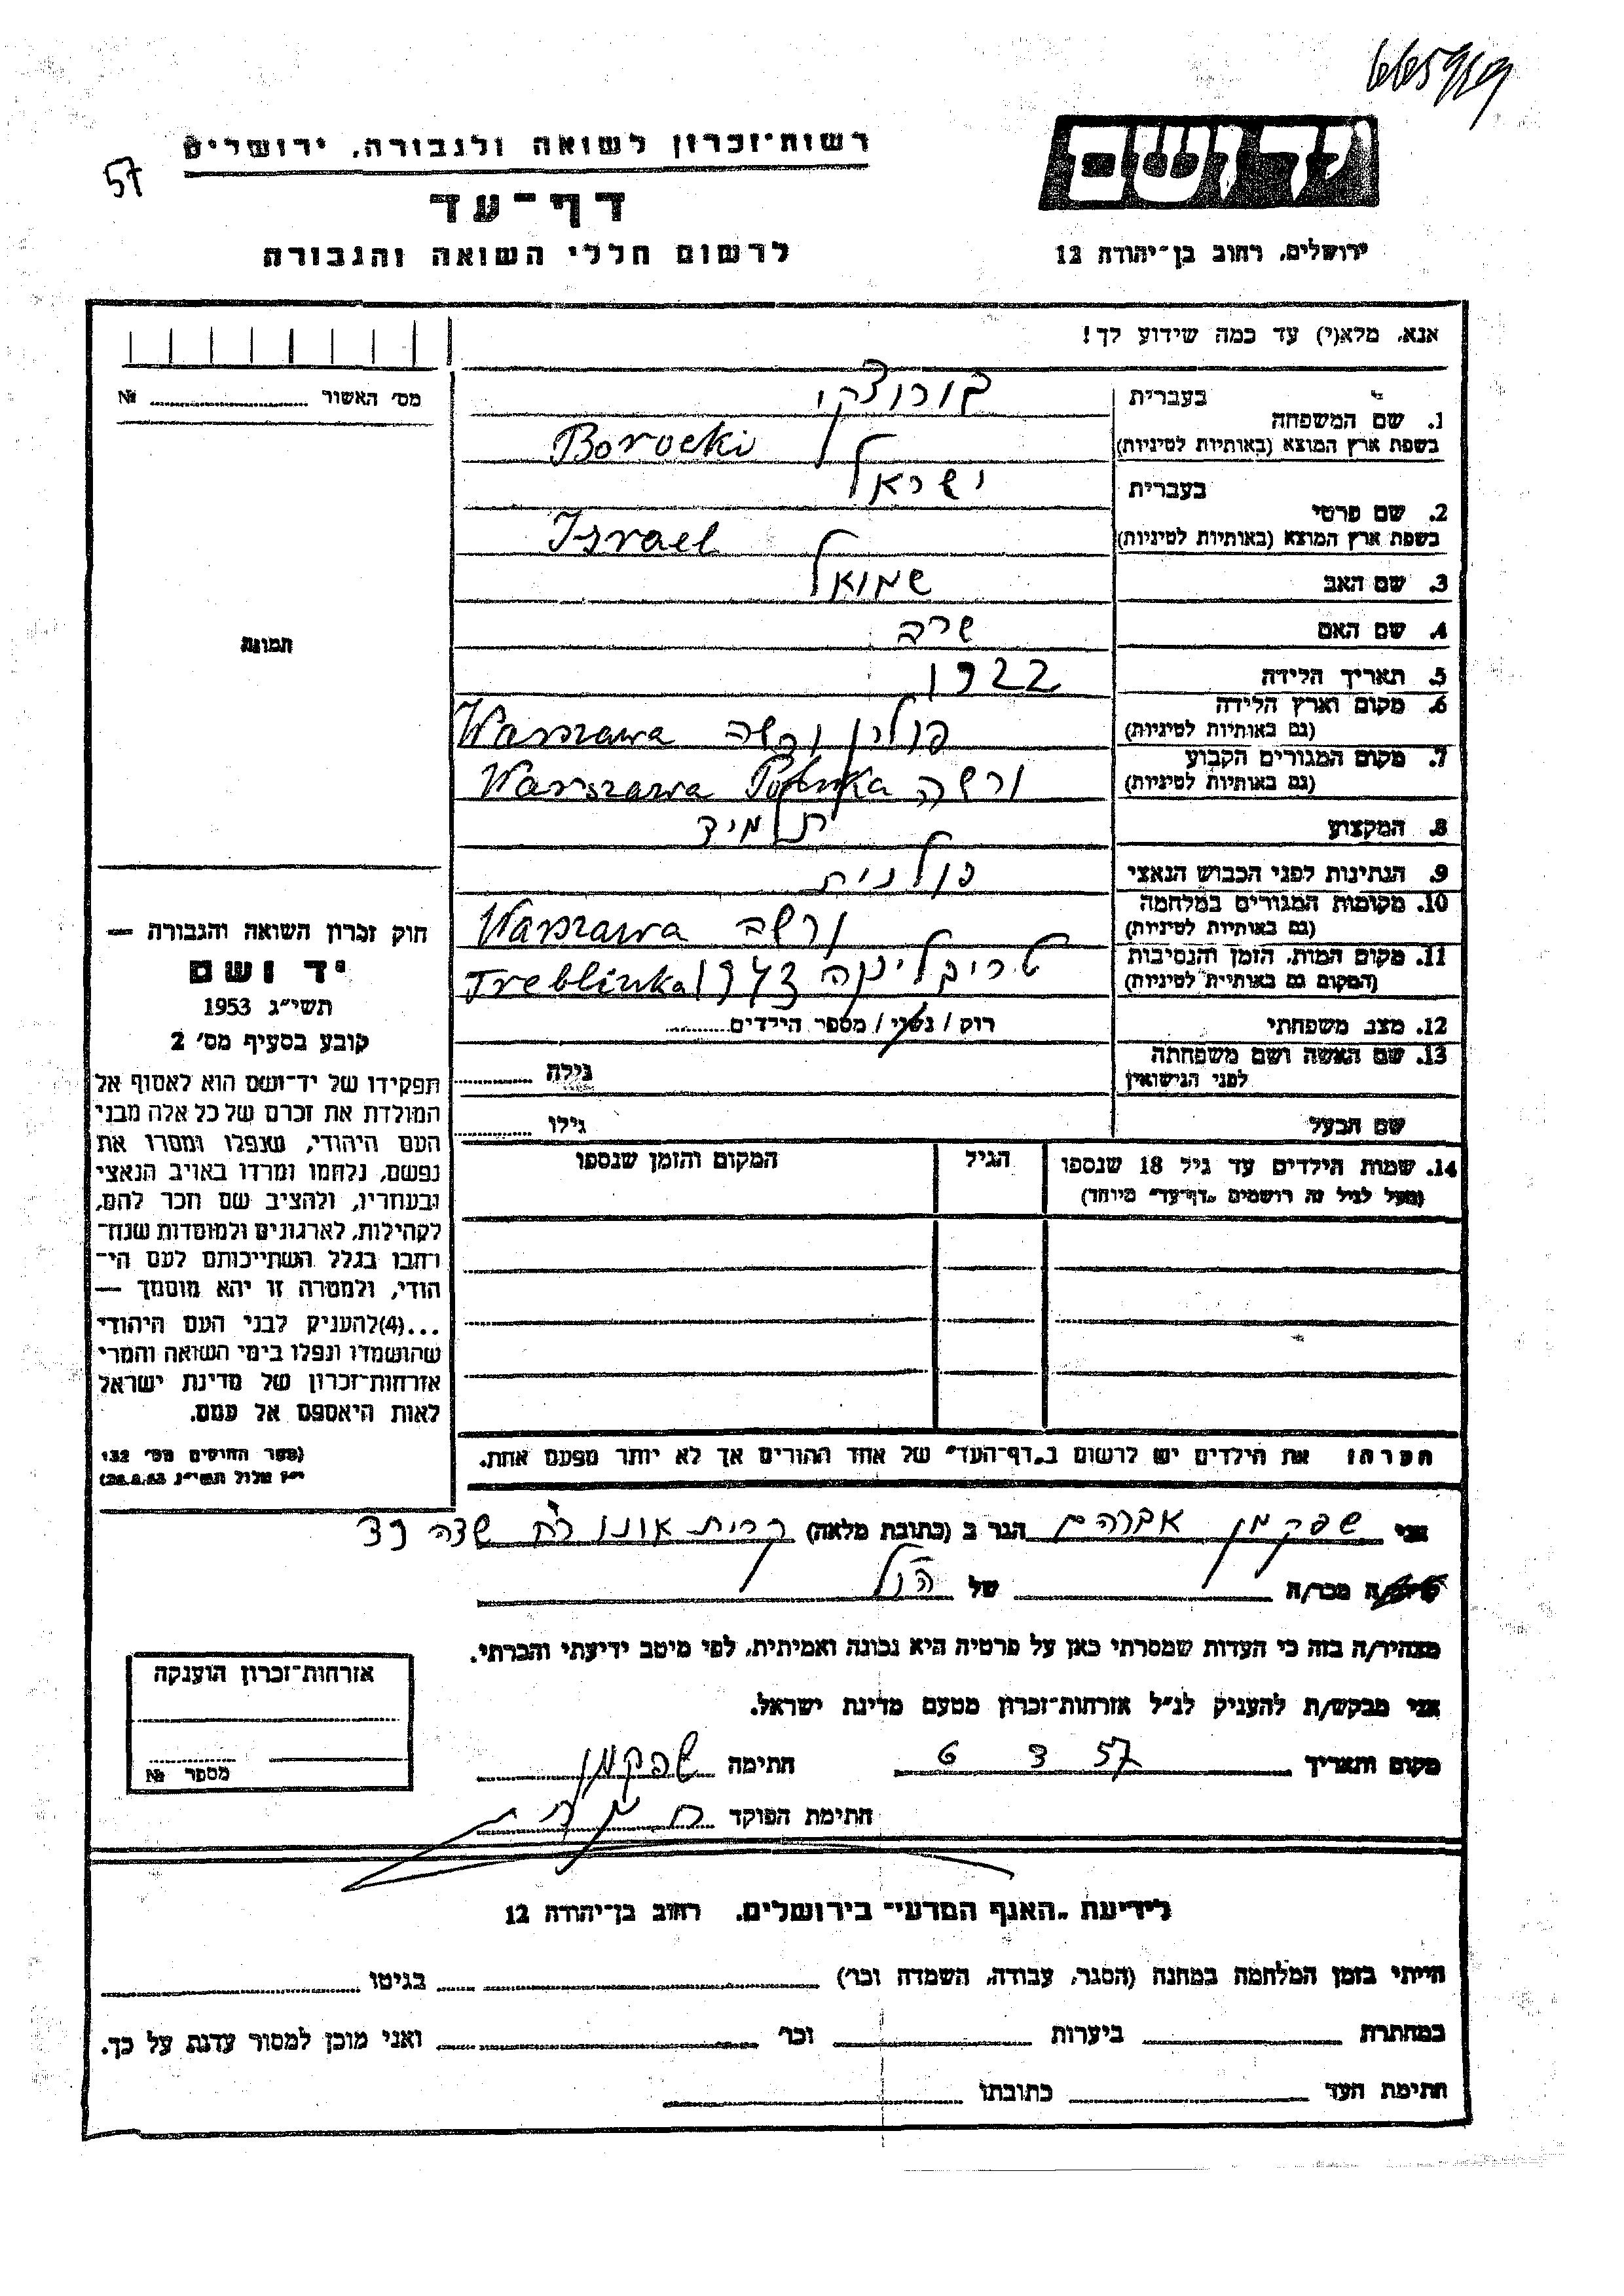 רשות־זכרון לשואה ולגבורה, ירושלים
57
דף־עד
לרשום חללי השואה והגבורה
יד ושם
ירושלים, רחוב בן־יהודה 12
אנא, מלא(י) עד כמה שידוע לך!
מס׳ האשור №
1. שם המשפחה
בעברית בורוצקי
בשפת ארץ המוצא (באותיות לטיניות) Borocki
2. שם פרטי
בעברית ישראל
בשפת ארץ המוצא (באותיות לטיניות) Israel
3. שם האב שמואל
4. שם האם שרה
5. תאריך הלידה 1922
6. מקום וארץ הלידה
(גם באותיות לטיניות) פולין ורשה Warszawa
7. מקום המגורים הקבוע
(גם באותיות לטיניות) ורשה Warszawa
8. המקצוע תלמיד
9. הנתינות לפני הכבוש הנאצי פולנית
10. מקומות המגורים במלחמה
(גם באותיות לטיניות) ורשה Warszawa
11. מקום המות, הזמן והנסיבות
(המקום גם באותיות לטיניות) טריבלינקה 1943 Treblinka
12. מצב משפחתי רוק / נשוי / מספר הילדים
13. שם האשה ושם משפחתה
לפני הנישואין גילה
שם הבעל גילו
14. שמות הילדים עד גיל 18 שנספו
(מעל לגיל זה רושמים „דף־עד״ מיוחד)
הגיל
המקום והזמן שנספו
תמונה
חוק זכרון השואה והגבורה —
יד ושם
תשי״ג 1953
קובע בסעיף מס׳ 2
תפקידו של יד־ושם הוא לאסוף אל
המולדת את זכרם של כל אלה מבני
העם היהודי, שנפלו ומסרו את
נפשם, נלחמו ומרדו באויב הנאצי
ובעוזריו, ולהציב שם וזכר להם,
לקהילות, לארגונים ולמוסדות שנח־
רבו בגלל השתייכותם לעם הי־
הודי, ולמטרה זו יהא מוסמך —
...(4)להעניק לבני העם היהודי
שהושמדו ונפלו בימי השואה והמרי
אזרחות־זכרון של מדינת ישראל
לאות היאספם אל עמם.
(ספר החוקים מס׳ 132
י״ז אלול תשי״ג 28.8.53)
הערה: את הילדים יש לרשום ב„דף־העד״ של אחד ההורים אך לא יותר מפעם אחת.
אני שפקמן אברהם הגר ב (כתובת מלאה) קרית אונו רח שדה
מכר/ה של הנ״ל
מצהיר/ה בזה כי העדות שמסרתי כאן על פרטיה היא נכונה ואמיתית, לפי מיטב ידיעתי והכרתי.
אני מבקש/ת להעניק לנ״ל אזרחות־זכרון מטעם מדינת ישראל.
מקום ותאריך 57 3 6 חתימה שפקמן
חתימת הפוקד
אזרחות־זכרון הוענקה
מספר №
לידיעת „האגף המדעי״ בירושלים, רחוב בן־יהודה 12
הייתי בזמן המלחמה במחנה (הסגר, עבודה, השמדה וכו׳) בגיטו
במחתרת ביערות וכו׳ ואני מוכן למסור עדות על כך.
חתימת העד כתובתו